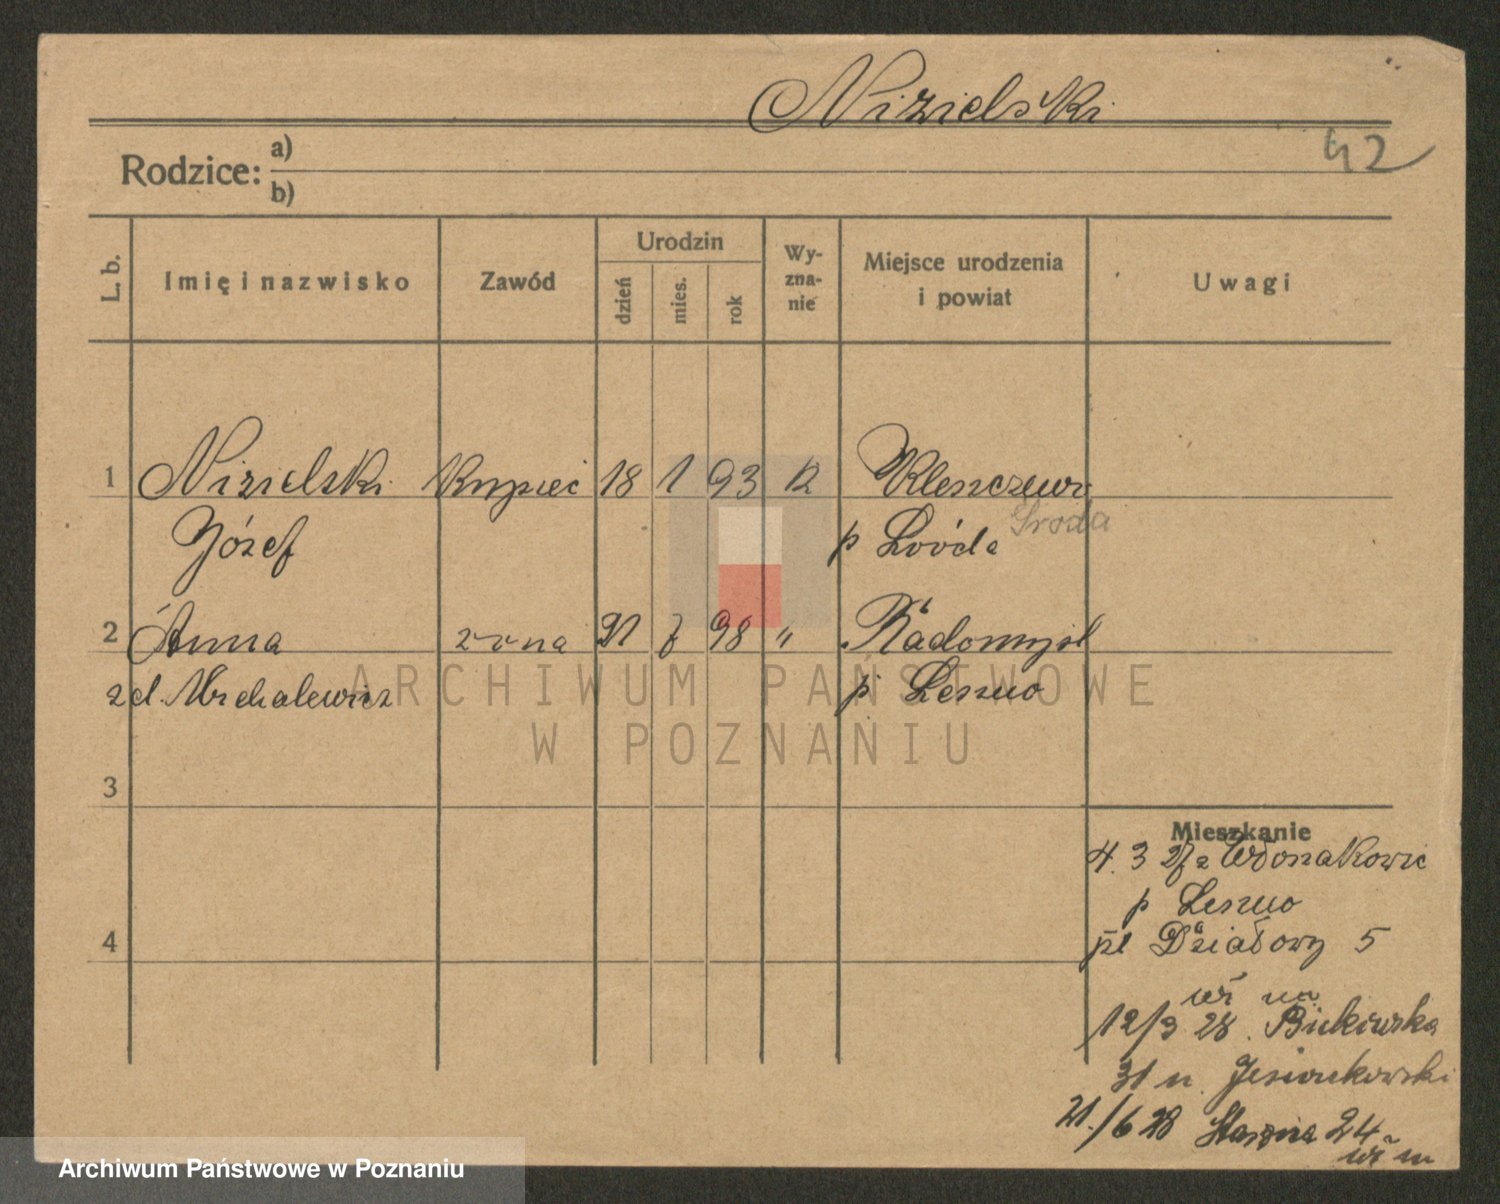 Nizielski
42
Rodzice: a)
b)
L. b. Imię i nazwisko Zawód Urodzin dzień mies. rok Wy-zna-nie Miejsce urodzenia i powiat Uwagi
1 Nizielski Kupiec 18 1 93 K Kleszczewo
Józef p Środa
2 Anna żona 21 7 98 " Radomyśl
zd. Michalewicz p Leszno
ARCHIWUM PAŃSTWOWE
W POZNANIU
3
Mieszkanie
4. 3 27 z
p Leszno
4 pl Działowy 5
12/3 28. Bukowska
31 u
21./6 28 24
Archiwum Państwowe w Poznaniu